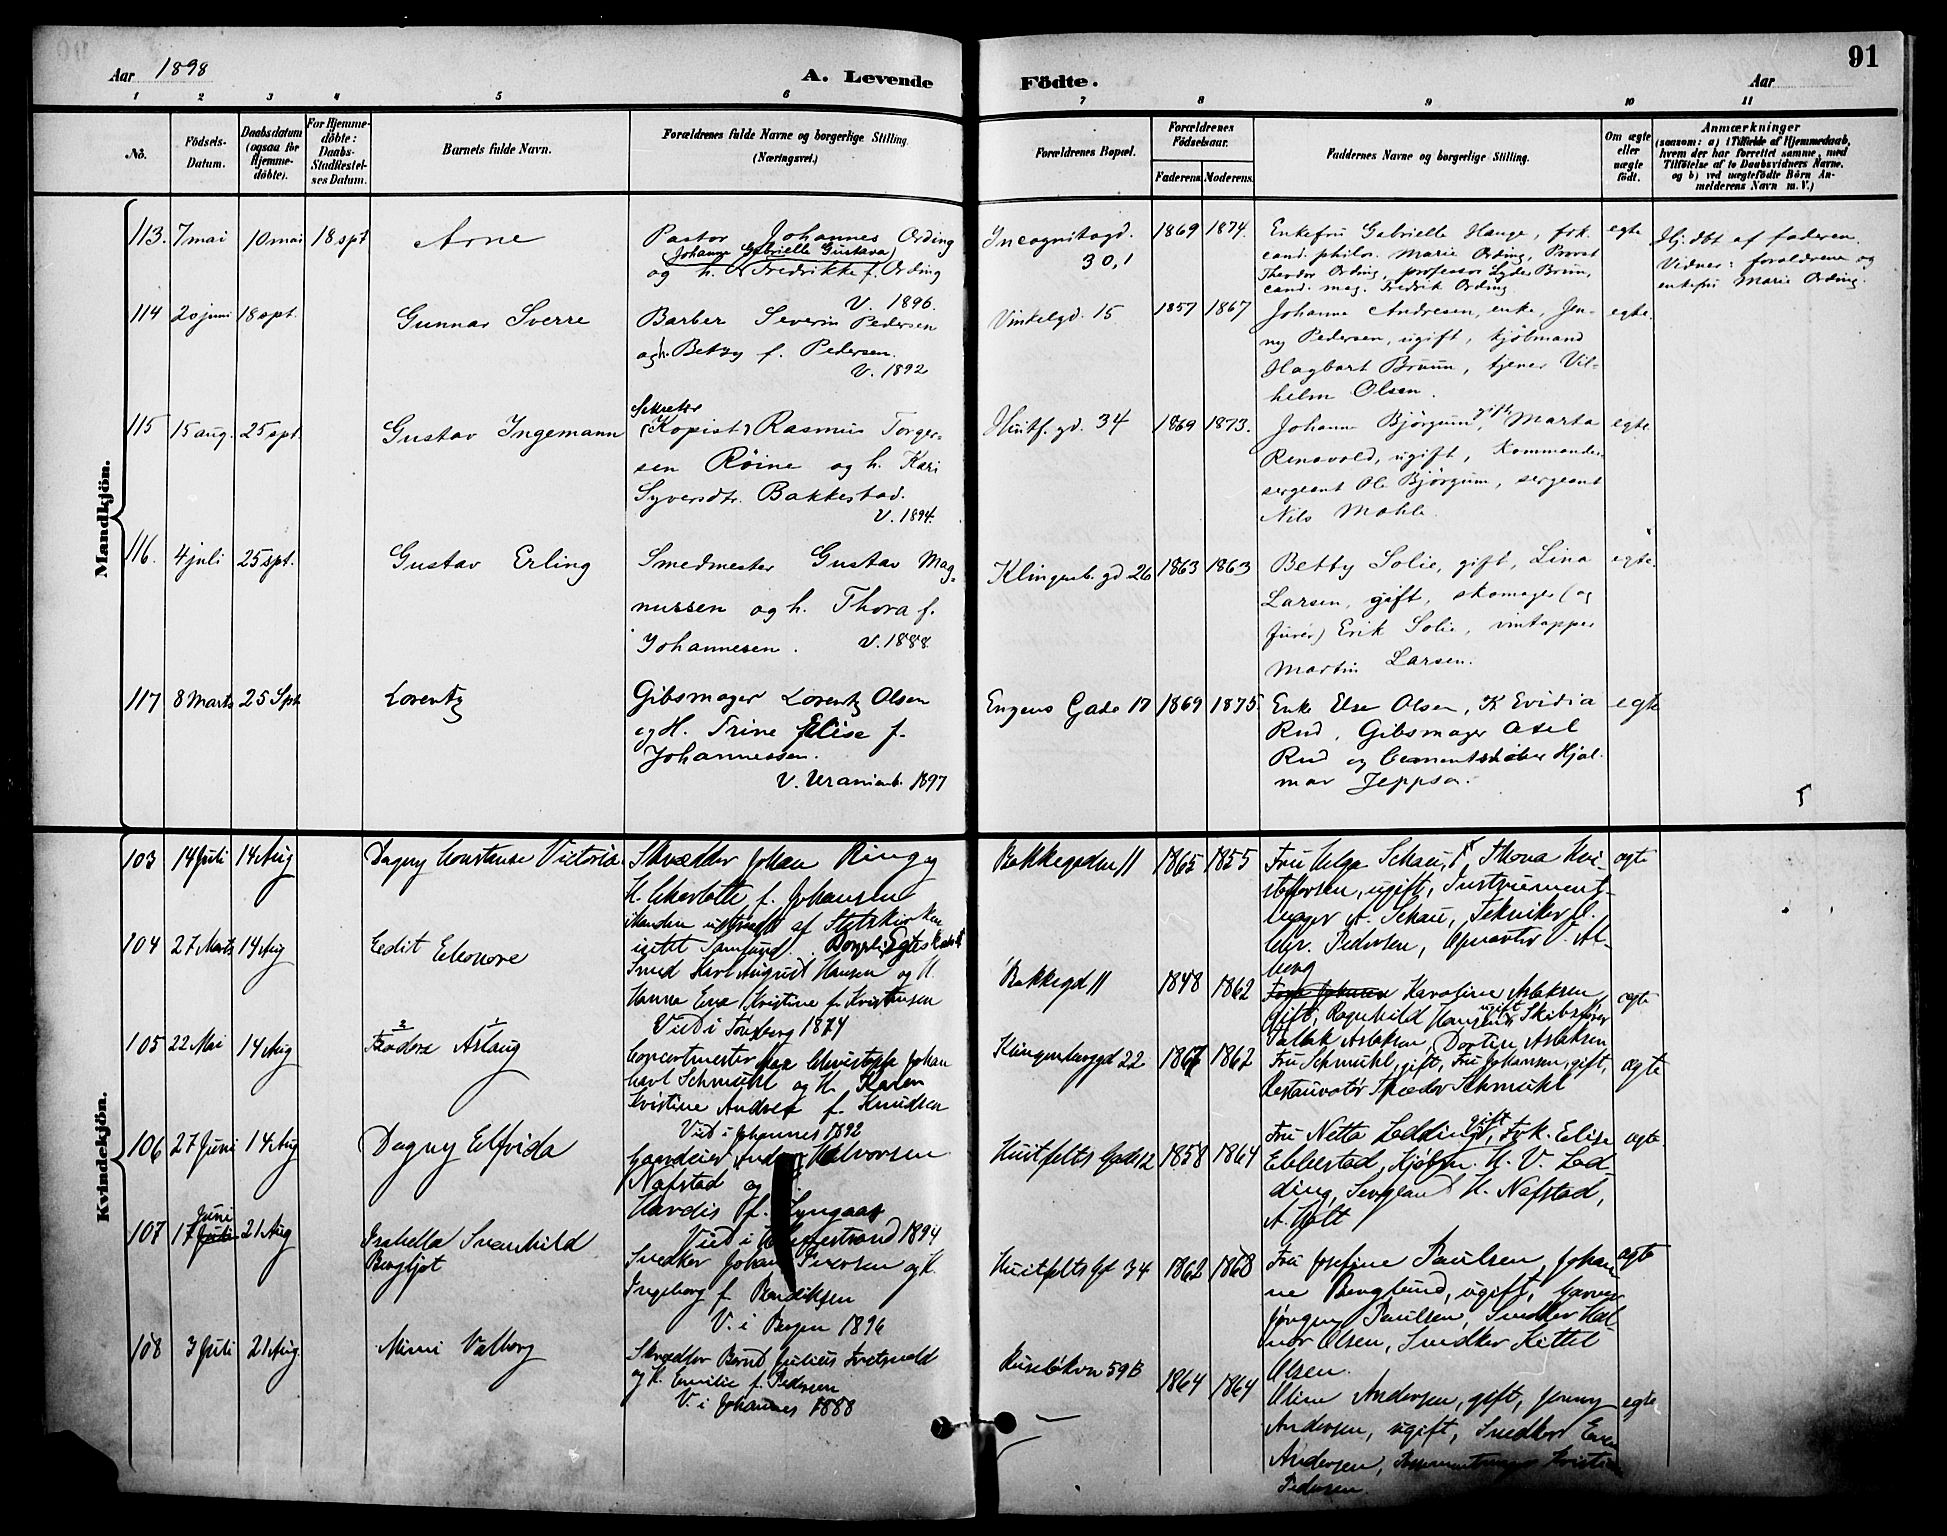 Aar 1898
A. Levende Födte.
Aar
91
1 2 3 4 5 6 7 8 9 10 11
No.
Födsels-
Datum.
Daabsdatum
(ogsaa for
Hjemme-
döbte).
For Hjemme-
döbte:
Daabs-
Stadfæstel-
ses Datum.
Barnets fulde Navn.
Forældrenes fulde Navne og borgerlige Stilling.
(Næringsvei.)
Forældrenes Bopæl.
Forældrenes
Födselsaar.
Faderens. Moderens.
Faddernes Navne og borgerlige Stilling.
Om ægte
eller
uægte
födt.
Anmærkninger
(saasom: a) i Tilfælde af Hjemmedaab,
hvem der har forrettet samme, med
Tilföielse af to Daabsvidners Navne,
og b) ved uægtefödte Börn An-
melderens Navn m. V.)
Mandkjön.
113. 7 mai 10 mai 18 spt
Arne
Pastor Johannes Ording
Johanne Gabrielle Gustava
og h. Fredrikke f. Ording
V. 1896.
Incognitogd.
30,1
1869 1874.
Enkefru Gabrielle Hauge, frk.
cand. philos. Marie Ording, Provst
Theodor Ording, professor Lyder Brun,
cand. mag. Fredrik Ording
egte
Hj.dbt af faderen.
Vidner: forældrene og
enkefru Marie Ording.
114 20 juni 18 spt.
Gunnar Sverre
Barber Severin Pedersen
og h. Betzy f. Pedersen.
V. 1892
Vinkelgd. 15
1857 1867
Johanne Andresen, enke, Jen-
ny Pedersen, ugift, kjøbmand
Hagbart Bruun, tjener Vil-
helm Olsen.
egte.
115 15 aug. 25 spt.
Gustav Ingemann
Sekretær
(Kopist) Rasmus Torger-
sen Röine og h. Kari
Syversdtr. Bakkestad.
V. 1894.
Huitf. gd. 34
1869 1873.
Johanne Bjørgum, gift, Marta
Renovold, ugift, Kommander-
sergeant Ole Bjørgum, sergeant
Nils Mohle.
egte
116. 4 juli 25 spt.
Gustav Erling
Smedmester Gustav Mag-
nussen og h. Thora f.
Johannesen. V. 1888
Klingenb. gd 26
1863 1863
Betty Solie, gift, Lina
Larsen, gift, skomager (og
furér) Erik Solie, vintapper
Martin Larsen.
egte.
117 8 Marts 25 Spt
Lorentz
Gibsmager Lorentz Olsen
og H. Trine Elise f.
Johannessen.
V. Uranienb. 1897
Engens Gade 17
1869 1875.
Enke Else Olsen, K Evidia
Rud, Gibsmager Axel
Rud og Cementstøber Hjal-
mar Jeppson.
egte
Kvindekjön.
103 14 Juli 14 Aug
Dagny Constanse Victoria
Skrædder Johan Ring og
H. Charlotte f. Johansen
Manden udtraadt af Statskirken
intet Samfund. Borgerlig Egteskab
Bakkegaden 11
1865 1855
Fru Helga Schau, Thora Kri-
stoffersen, ugift, Instrument-
mager A. Schau, Tekniker
Chr. Pedersen, V. Al-
berg
ægte
104 27 Marts 14 Aug
Edit Eleonore
Smed Karl August Hansen og H.
Hanna Eva Kristine f. Kristensen
Viet i Tønsberg 1874
Bakkegd 11
1848 1862
Karoline Aslaksen
gift, Ragnhild Hansen ugift, Skibsfører
Aslaksen, Dortea Aslaksen
ægte
105 22 Mai 14 Aug
2 1
Feodora Aslaug
Concertmester Max Christoffer Johan
Carl Schmühl og H. Karen
Kristine Andrea f. Knudsen
Viet i Johannes 1892
Klingenberggd 22
1867 1862
Fru Schmühl, gift, Fru Johansen, gift,
Restauratør Schmühl
ægte
106 27 Juni 14 Aug
Dagny Elfrida
Gaardeier Anders Halvorsen
Nafstad og
Hardis f. Lyngaas
Viet i Holmestrand 1894
Huitfeldts Gade 12
1858 1864
Fru Netta Ledding, gift, Frk. Elise
Ebbestad, Kjøbm. H. V. Led-
ding, Sergeant H. Nafstad,
A. Holt
ægte.
107 17 Juni
Juli 21 Aug
Isabella Svanhild
Bergljot
Snedker Johan Iversen og H.
Ingeborg f. Bendiksen
V. i Bergen 1896
Huitfeldts Gd 34
1862 1868
Fru Josefine Paulsen, Johan-
ne Berglund, ugift, Garver
Jørgen Paulsen, Snedker Hal-
vor Olsen, Snedker Kittel
Olsen.
ægte
108 3 Juli 21 Aug.
Mimi Valborg
Skrædder Bernt Julius Tretsvold
og H. Emilie f. Pedersen
V. i Johannes 1888
Ruseløkvn 59B
1864 1864
Oline Andersen, gift, Jenny
Andersen, ugift, Snedker Even
Andersen, Kristian
Pedersen.
egte